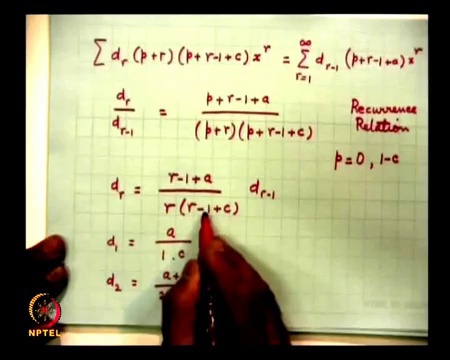 ∑ d_r (p+r) (p+r-1+c) x^r = ∑_{r=1}^{∞} d_{r-1} (p+r-1+a) x^r
d_r / d_{r-1} = (p+r-1+a) / ((p+r)(p+r-1+c))
Recurrence
Relation
p=0, 1-c
d_r = (r-1+a) / (r(r-1+c)) d_{r-1}
d_1 = a / (1 · c)
d_2 =
NPTEL